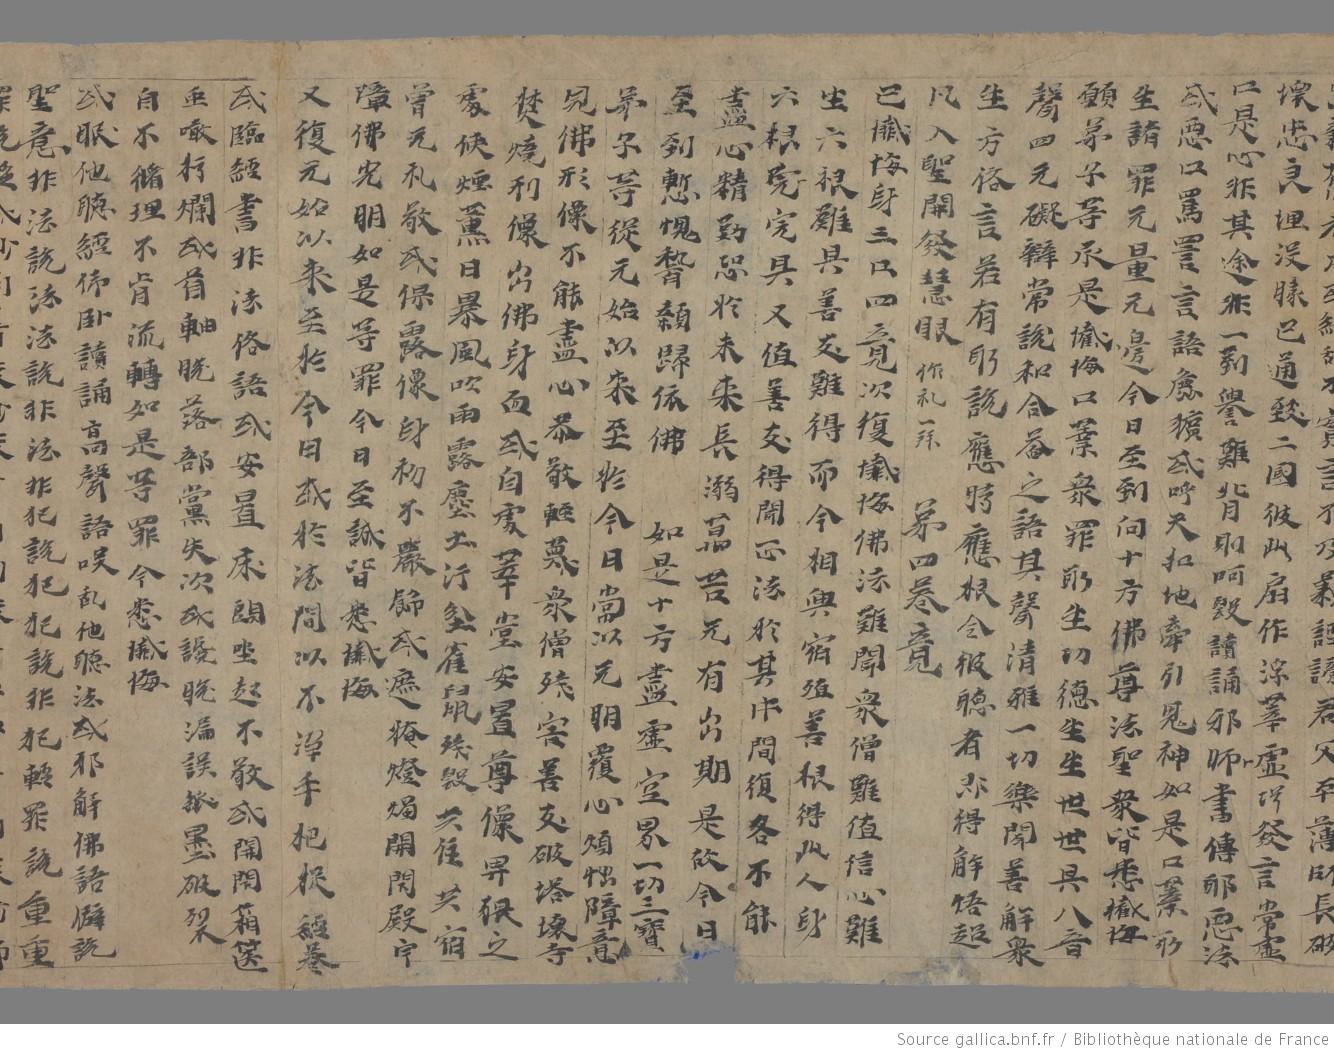 壞忠良埋沒勝己通致二國彼此扇作浮華虛辞發言常虛
口是心非其途非一對譽雖背則呵毀讀誦邪師書傳邪惡法
或惡口罵詈言語麁獷或呼天扣地牽引鬼神如是口業所
生諸罪无量无邊今日至到向十方佛尊法聖衆皆悉懺悔
願弟子等承是懺悔口業衆罪所生功德生生世世具八音
聲四无礙辯常說和合益之語其聲清雅一切樂聞善解衆
生方俗言若有所說應時應根令彼聽者即得解悟超
凡入聖開發慧眼 作礼一拜
第四卷竟
已懺悔身三口四竟次復懺悔佛法難聞衆僧難值信心難
生六根難具善友難得而今相與宿殖善根得此人身
六根完具又值善友得聞正法於其中間復各不能
盡心精勤恐於未來長溺万苦无有出期是故今日
至到慙愧稽顙歸依佛
如是十方盡虛空界一切三寶
弟子等從无始以來至於今日當以无明覆心煩惱障意
見佛形像不能盡心恭敬輕蔑衆僧殘害善友破塔壞寺
焚燒形像出佛身血或自處華堂安置尊像卑猥之
處使煙薰日暴風吹雨露塵土汙坌雀鼠殘毀共住共宿
曾无礼敬或倮露像身初不嚴飾或遮掩燈燭開閉殿宇
障佛光明如是等罪今日至誠皆悉懺悔
又復无始以來至於今日或於法間以不淨手把捉經卷
或臨經書非法俗語或安置床頭坐起不敬或開閉箱篋
虫噉朽爛或首軸脫落部黨失次或說脫漏誤紙墨破裂
自不脩理不肯流轉如是等罪今悉懺悔
或眠他聽經仰卧讀誦高聲語咲乱他聽法或邪解佛語僻說
聖意非法說法法說非法非犯說犯犯說非犯輕罪說重重